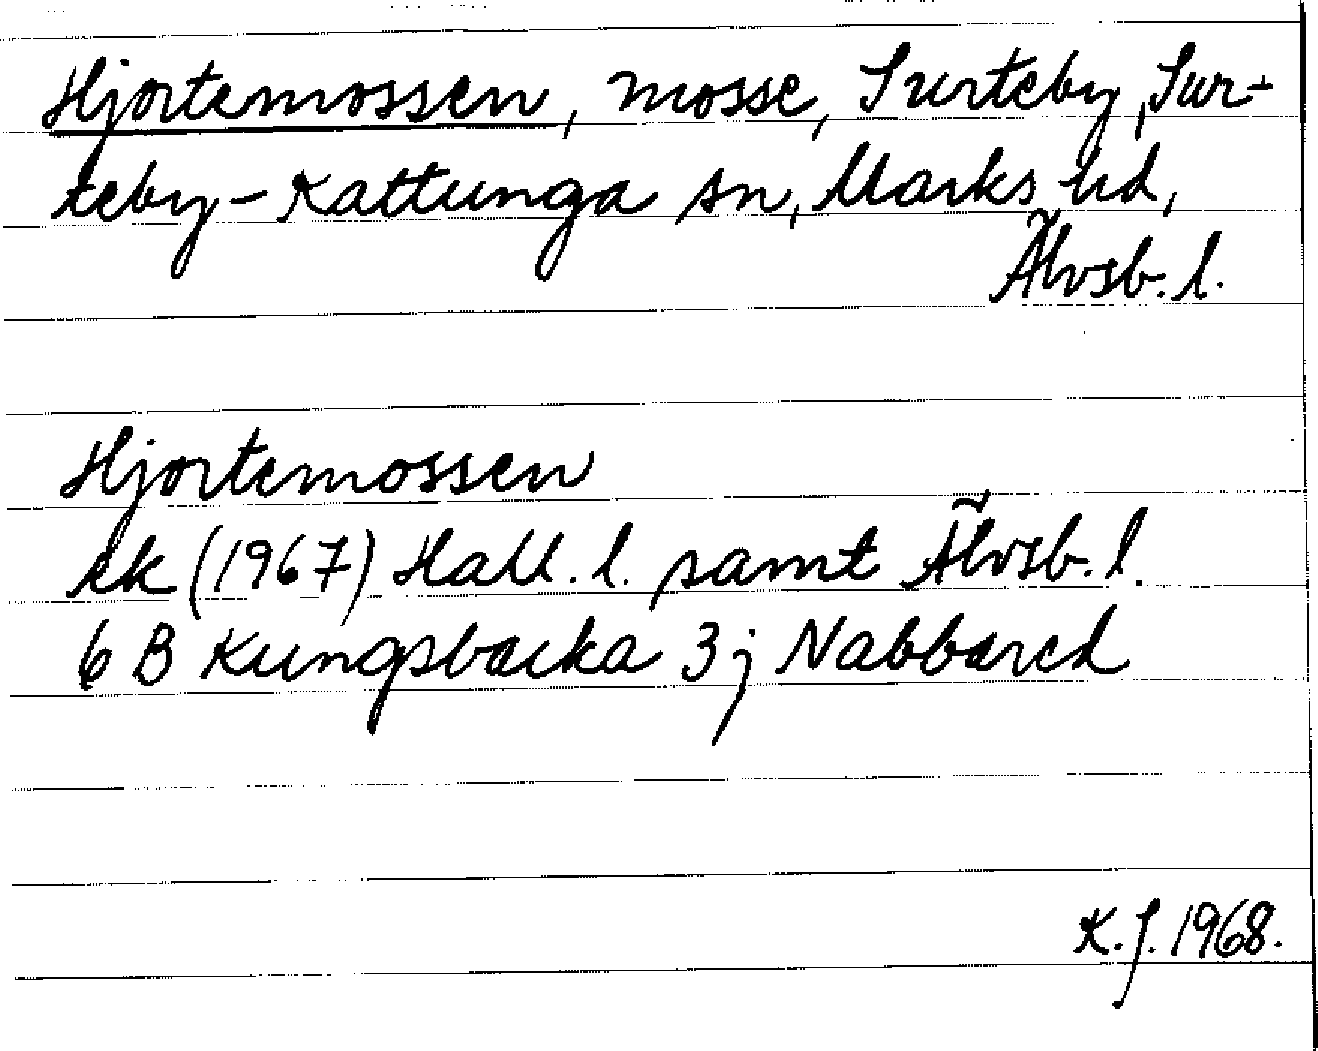 Hjortemossen, mosse, Surteby, Sur-
teby-Kattunga sn, Marks hd,
Älvsb. l.
Hjortemossen
ek (1967) Hall. l. samt Älvsb. l.
6 B Kungsbacka 3j Nabbared
K.J. 1968.